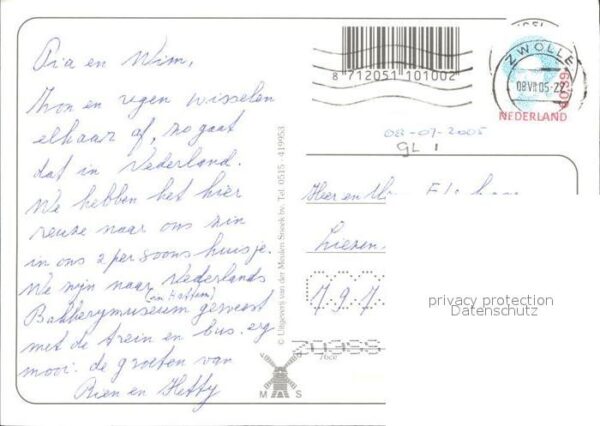 Ria en Wim,
Zon en regen wisselen
elkaar af, zo gaat
dat in Nederland.
We hebben het hier
reuze naar ons zin
in ons 2 persoons huisje.
We zijn naar Nederlands
(in Hattem)
Bakkerymuseum geweest
met de trein en bus. erg
mooi. de groeten van
Rien en Hetty
8 712051 101002
ZWOLLE
08VII05-22
0,39
NEDERLAND
08-07-2005
GL 1
© Uitgeverij van der Meulen Sneek bv. Tel. 0515 - 419953
Heer en
797
M S
privacy protection
Datenschutz